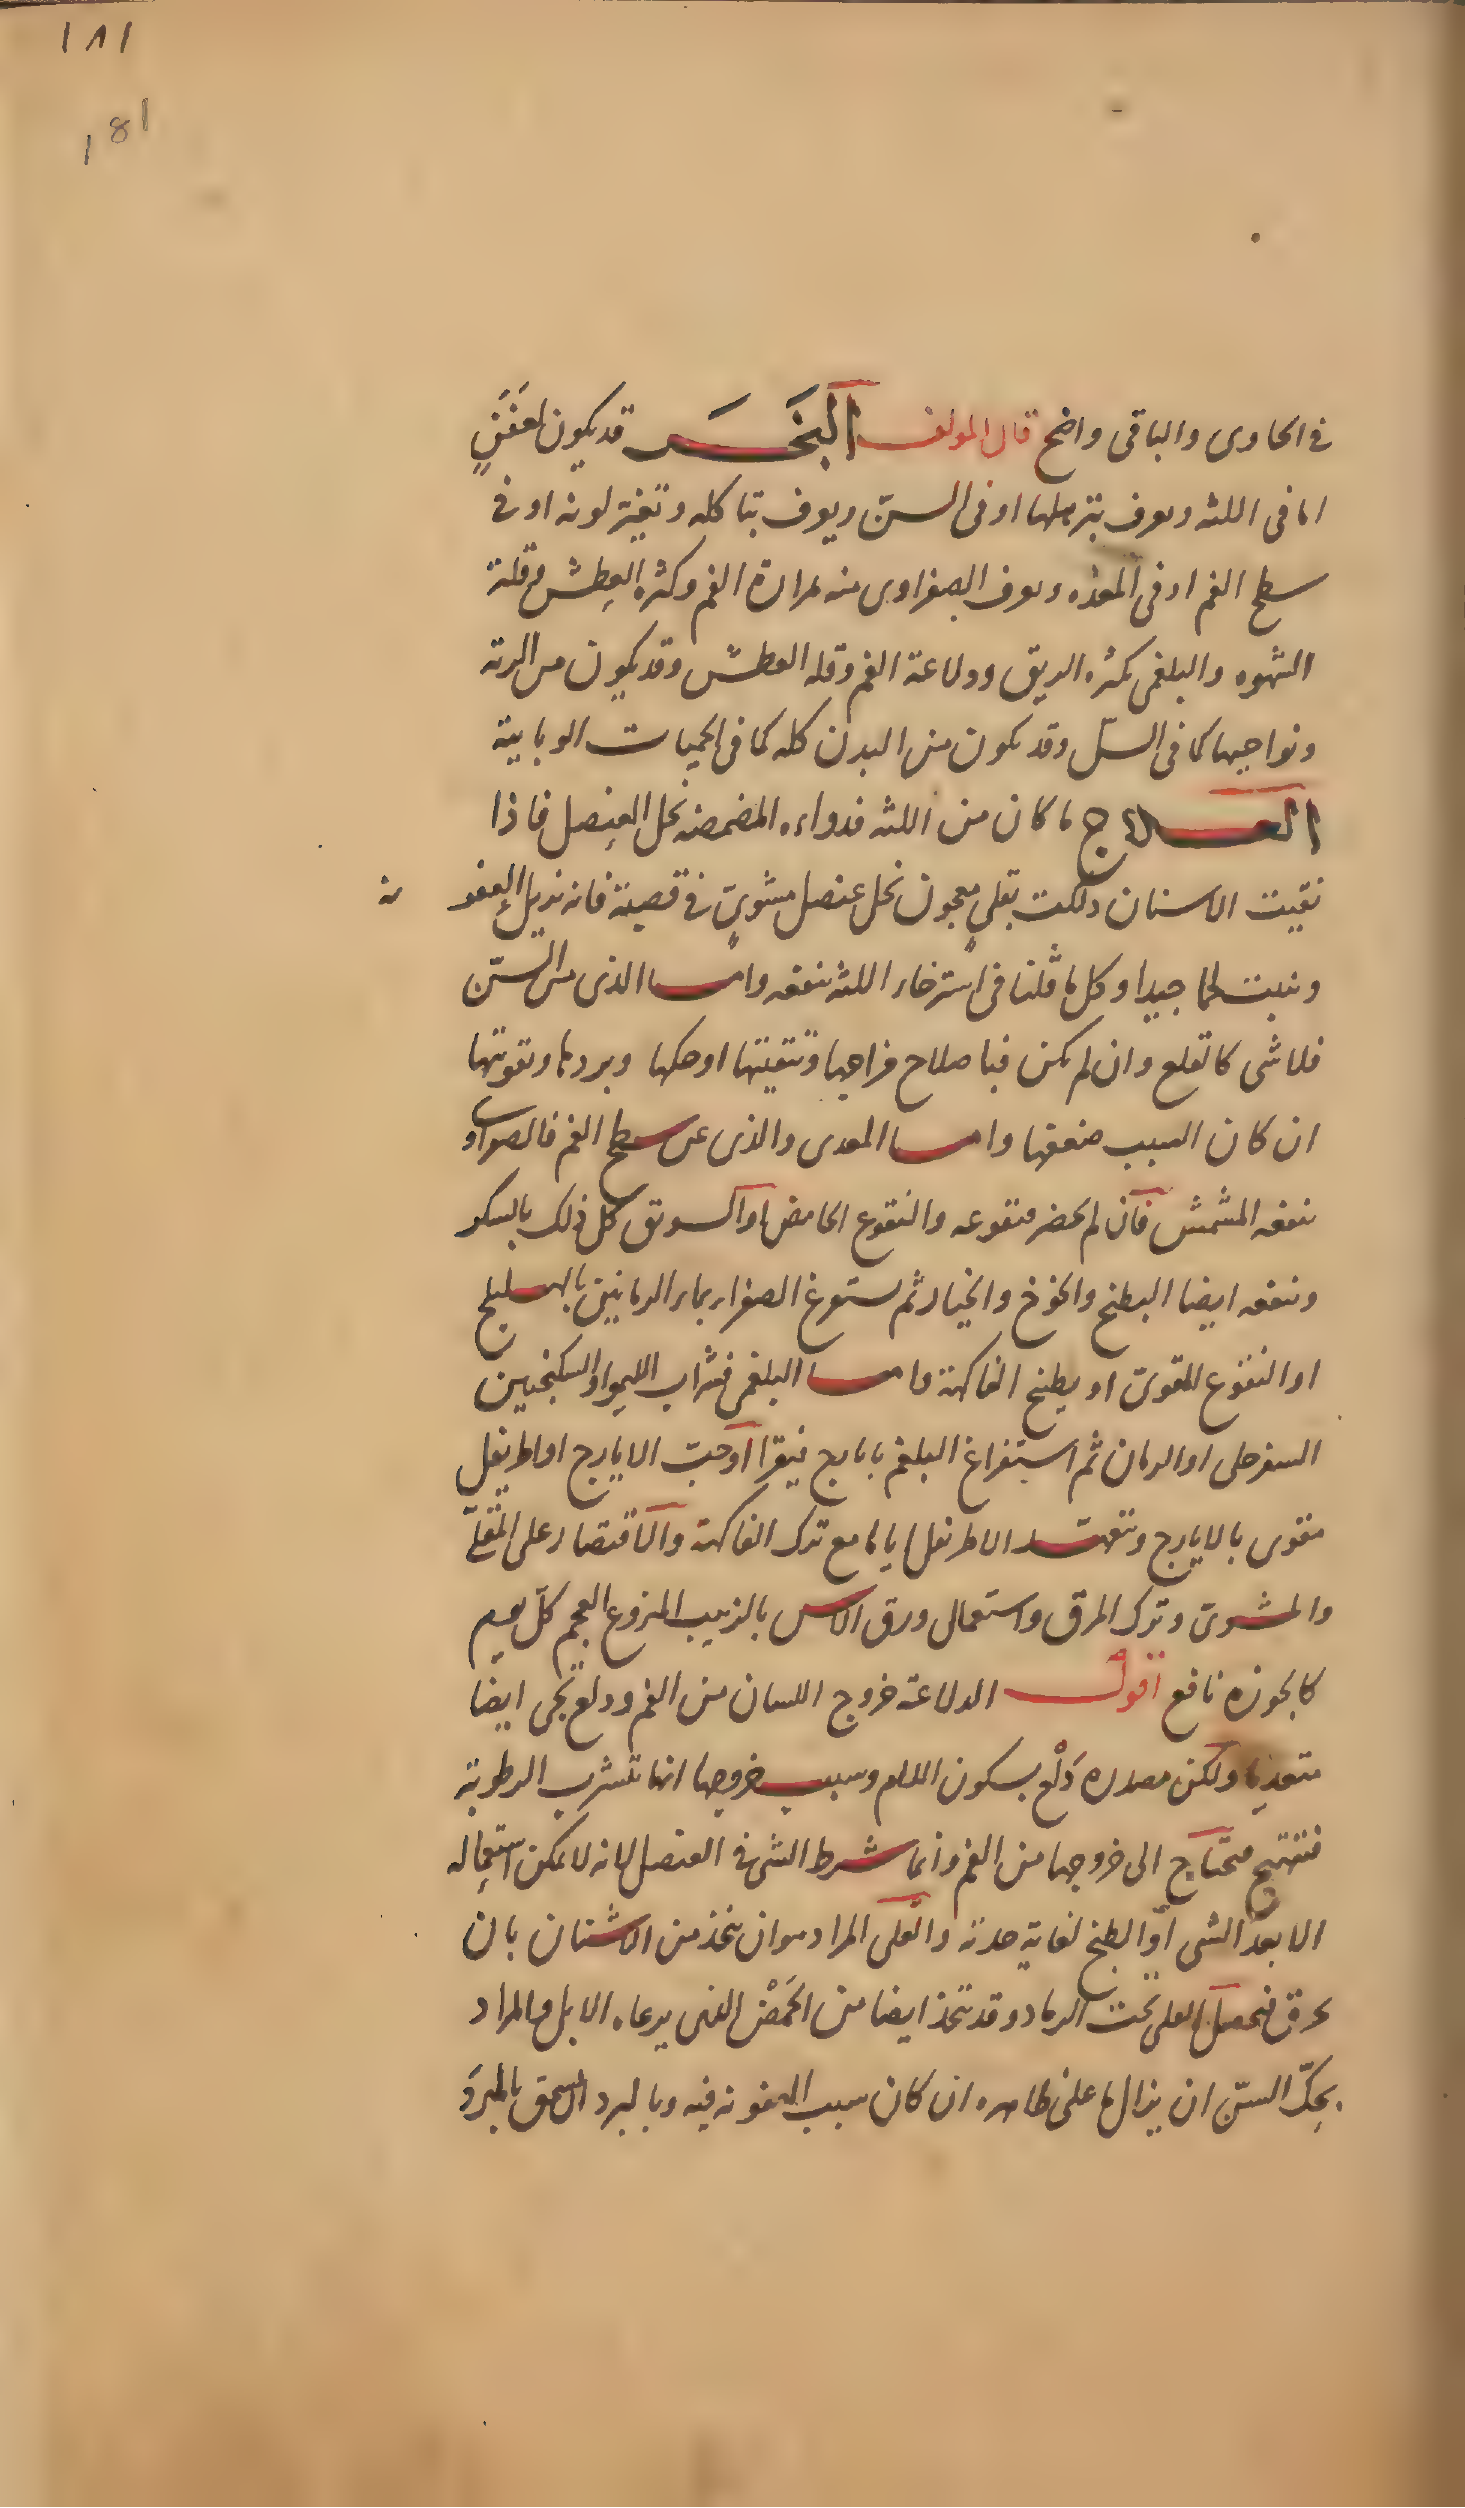 ١٨١
181
في الحاوى والباقى واضح قال المولف البَخَر قد يكون لعفَنٍ
اما فى اللثه ويعرف بترهلها او فى السنّ ويعرف بتاكله وتغيّر لونه او فى
سطح الفم او فى المعده ويعرف الصفراوى منه بمرارة الفم وكثرة العطش وقلة
الشهوه والبلغمى بكثره الريق ودلاعة الفم وقله العطش وقد يكون من الرئة
ونواحيها كما فى السلّ وقد يكون من البدن كله كما فى الحميات الوبايية
العـــلاج ما كان من اللثه فدواءه المضمضه بخل العنصل فاذا
نقيت الاسنان دلكت بقلى معجون بخل عنصل مشوىّ فى قصبة فانه يزيل العفونة
وينبت لحما جيدا وكل ما قلنا فى استرخاء اللثه ينفعه واما الذى من السنّ
فلا شى كالقلع وان لم يكن فباصلاح مزاجها وتنقيتها او حكها وبردها وتقويتها
ان كان السبب ضعفها واما المعدى والذى عن سطح الفم فالصفراوى
ينفعه المشمش فان لم يحضر فنقوعه والنقوع الحامض او السويق كل ذلك بالسكر
وينفعه ايضا البطيخ والخوخ والخيار ثم يستفرغ الصفراء بماء الرمانين بالهليلج
او النقوع المقوىّ او بطبخ الفاكهة واما البلغمى فشراب الليمو او السكنجبين
السفرجلى او الرمان ثم استفراغ البلغم بايارج فيقرا او حبّ الايارج او اطريفل
مقوى بالايارج ويتعهد الاطريفل اياما مع ترك الفاكهة والاقتصار على القلىّ
والمشوىّ وترك المرق واستعمال ورق الاس بالزبيب المنزوع العجم كلّ يوم
كالجوزه نافع اقول الدلاعة خروج اللسان من الفم ودلع يجى ايضا
متعديا ولكن مصدره دَلْع بسكون اللام وسبب خروجها انها تشرب الرطوبة
فتنتفخ فتحتاج الى خروجها من الفم وانما شرط الشى فى العنصل لانه لا يمكن استعماله
الا بعد الشى او الطبخ لغاية حدته والقلى المراد هو ان يتخذ من الاشنان بان
يحرق فيحصل القلى تحت الرماد وقد تتخذ ايضا من الحَمْض الذى يرعاه الابل والمراد
بحكّ السنّ ان يزال ما على ظاهره ان كان سبب العفونه فيه وبالبرد السحق بالمبرَد